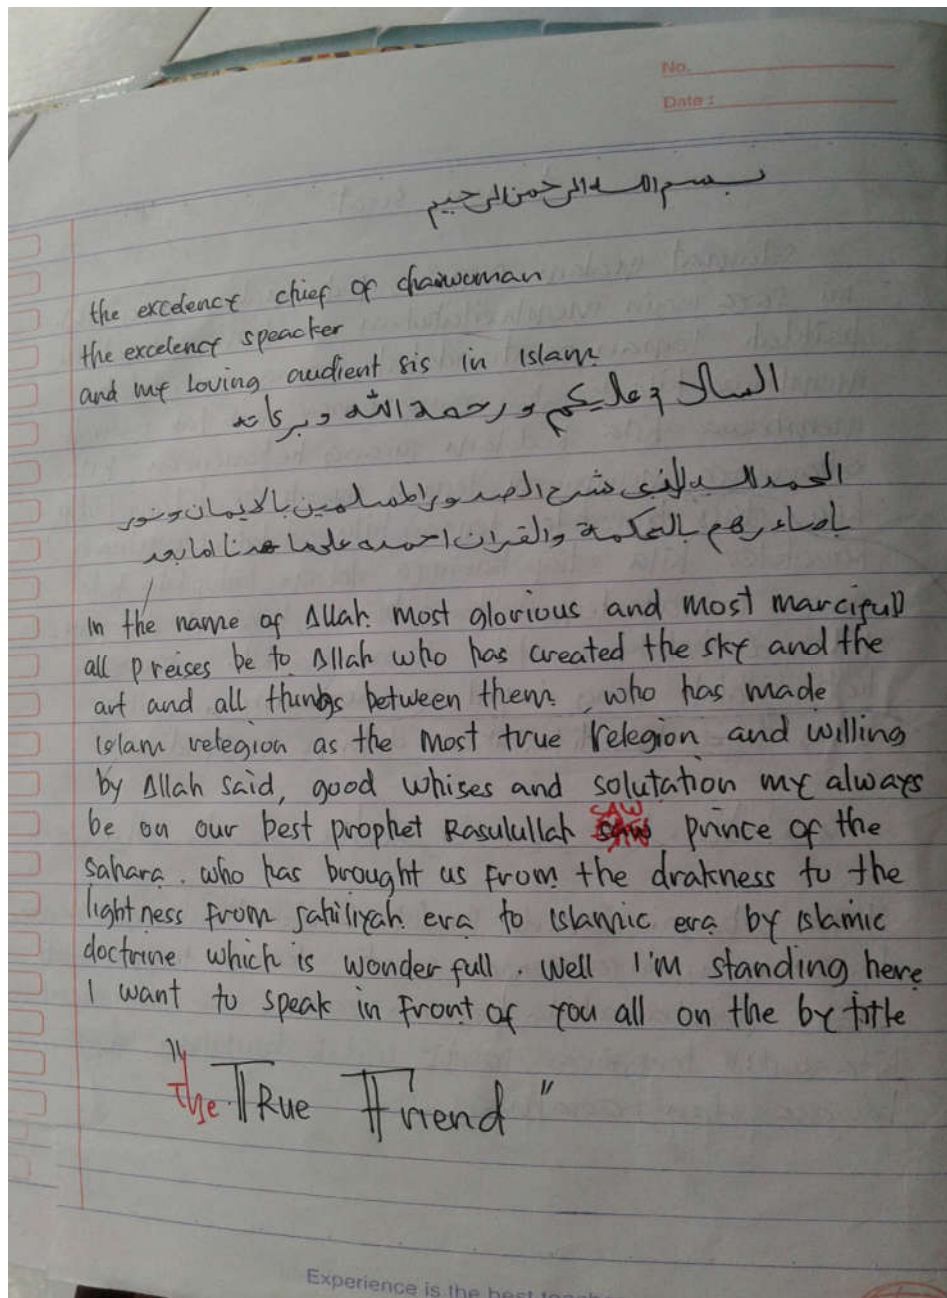 No.
Date :
بسم الله الرحمن الرحيم
the excelency chief of chairwoman
the excelency speacker
and my loving audient sis in Islam
السلام عليكم ورحمة الله وبركاته
الحمد لله الذى شرح الصدور المسلمين بالايمان ونور
بصاءرهم بالحكمة والقران احمده على ما هدنا اما بعد
In the name of Allah most glorious and most marcifull
all preises be to Allah who has created the sky and the
art and all things between them, who has made
Islam relegion as the most true relegion and willing
by Allah said, good whises and solutation my always
be on our best prophet Rasulullah SAW prince of the
sahara. who has brought us from the drakness to the
lightness from jahiliyah era to Islamic era by Islamic
doctrine which is wonder full. Well I'm standing here
I want to speak in front of you all on the by title
"the True Friend"
Experience is the best